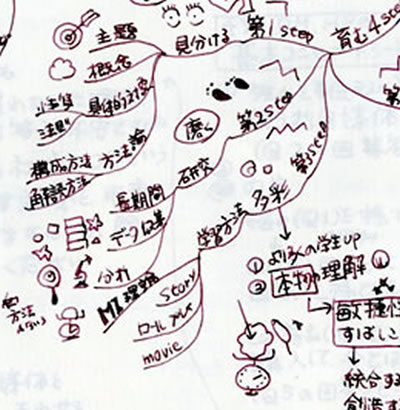 主題
見分ける
第1step
育む4ste
概念
具体的対象
第2step
磨く
構成方法
方法論
第3step
研究
長期間
多彩
データ収集
学習方法
分析
①より多くの学生UP
②本物の理解
MI理論
story
ロールプレイ
movie
敏捷性
すばしこ
方法
統合する
創造す